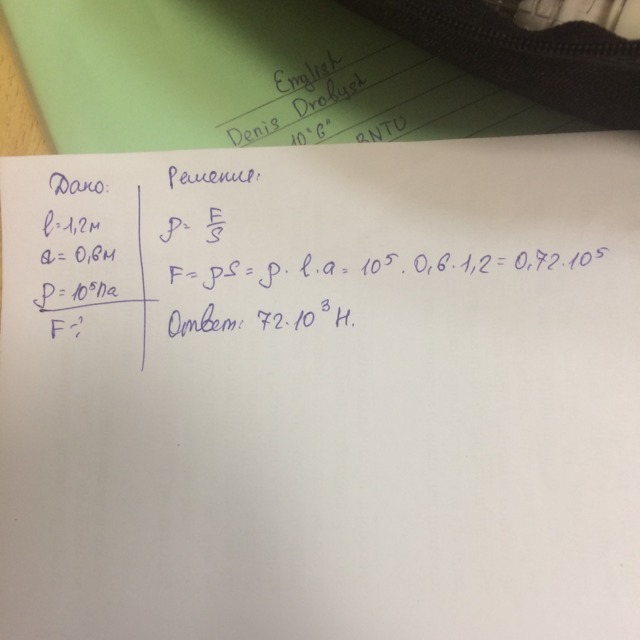 English
Denis Drobysh
10 "б"
BNTU
Дано:
l = 1,2м
a = 0,6м
p = 10⁵Па
F - ?
Решение:
p = F/S
F = pS = p · l · a = 10⁵ · 0,6 · 1,2 = 0,72 · 10⁵
Ответ: 72 · 10³ Н.